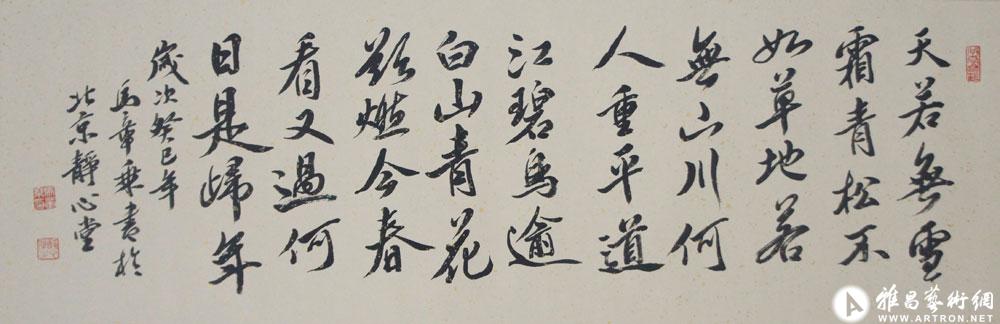 天若無雪
霜青松不
如草地若
無山川何
人重平道
江碧鳥逾
白山青花
欲燃今春
看又過何
日是歸年
歲次癸巳年
馬章乘書於
北京靜心堂
雅昌藝術網
WWW.ARTRON.NET